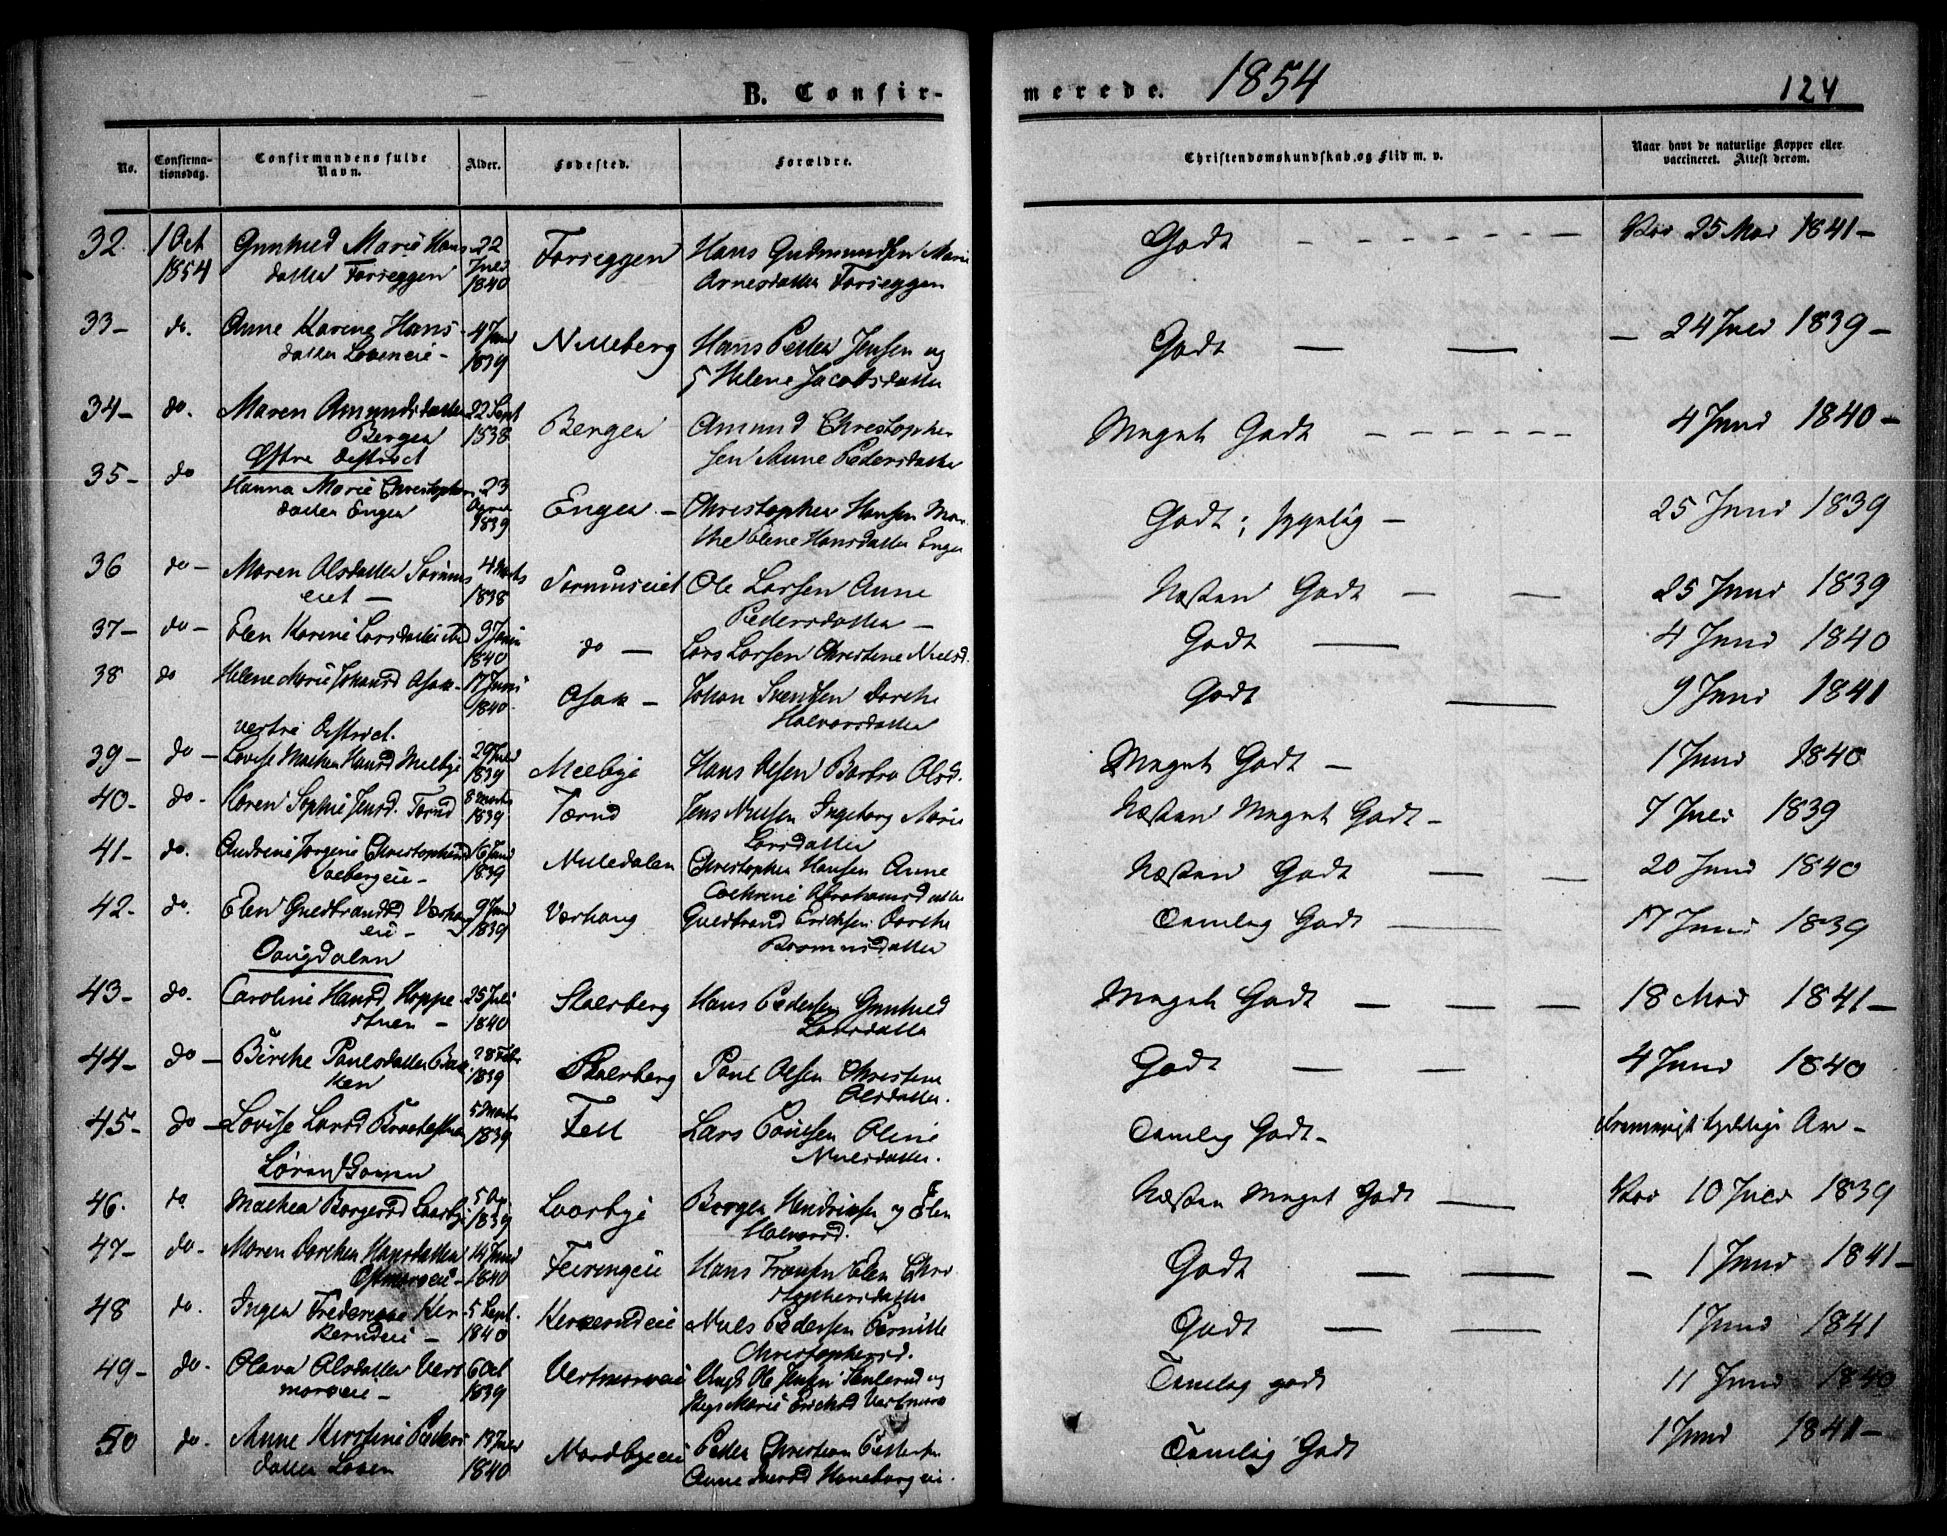 B. Confir-
merede. 1854
124
No.
Confirma-
tionsdag.
Confirmandens fulde
Navn.
Alder.
Fødested.
Forældre.
Christendomskundskab, og Flid m. v.
Naar havt de naturlige Kopper eller
vaccineret. Attest derom.
32. 1 Oct 1854 Gunhild Marie Hans
datter Forseggen
22 Juli 1840
Forseggen
Hans Gudmundsen Marie
Arnesdatter Forseggen
Godt
25 Mai 1841 -
33 - do. Anne Karine Hans-
datter Loseneie -
4 Juni 1839
Nilleberg
Hans Peder Jensen og
Helene Jacobsdatter
Godt
24 Juli 1839 -
34 - do. Maren Amundsdatter
Bergen
22 Sept 1838
Bergen
Amund Christopher
sen Anne Pedersdatter
Meget Godt
4 Juni 1840 -
Østre District
35 - do Hanna Marie Christophers
datter Engen
23 1839
Engen -
Christopher Hansen Mar
the Olene Hansdatter Engen
Godt; sygelig -
25 Juni 1839
36 do - Maren Olsdatter Sørums
eiet -
4 Marts 1838
Sørumseiet
Ole Larsen Anne
Pedersdatter -
Næsten Godt
25 Juni 1839
37 - do - Elen Karine Larsdatter
3 Juni 1840
do -
Lars Larsen Christine Nielsd.
Godt
4 Juni 1840
38 do Helene Marie Johansd Asak -
17 Juni 1840
Asak -
Johan Svendsen Dorthe
Halvorsdatter
Godt
9 Juni 1841
Vestre District.
39 - do - Lovise Mathea Hansd Melbye
29 Juli 1839
Melbye
Hans Olsen Barbro Olsd.
Meget Godt -
1 Juni 1840
40 - do - Karen Sophie Jensd. Tærud
8 Marts 1839
Tærud
Jens Nielsen Ingeborg Marie
Larsdatter
Næsten Meget Godt -
7 Juli 1839
41 - do. Andrine Jørgine Christophersd
16 Juni 1839
Muledalen
Christopher Hansen Anne
Cathrine Abrahamsdatter
Næsten Godt
20 Juni 1840
42 - do. Elen Guldbrandsd Værhaug
eie -
9 Juni 1839
Værhaug
Guldbrand Erichsen Dorthe
Temlig Godt
17 Juni 1839
Ougdalen
43 - do. Caroline Hansd Hoppe -
stuen -
25 Juli 1840
Skalsberg
Hans Pedersen Gunhild
Larsdatter
Meget Godt
18 Mai 1841 -
44 - do - Birthe Paulsdatter Bak
ken
28 Febr 1839
Skalsberg
Paul Olsen Christine
Olsdatter.
Godt
4 Juni 1840
45 - do - Lovise Larsd
5 Marts 1839
Fell
Lars Poulsen Oline
Nielsdatter.
Temlig Godt -
tydelige Ar -
Lørenskogen
46. do Mathea Borgersd Laasby
5 1839
Laasbye
Borger Hendriksen og Elen
Halvorsd.
Næsten Meget Godt
10 Juli 1839
47 - do - Maren Dorthea Hansdatter
Østmorkeie -
14 Juni 1840
Feiringeie
Hans Fransen Elen Chri
stophersdatter
Godt
1 Juni 1841 -
48 do. Inger Frederikke Ker
kerudeie -
5 Sept. 1840
Kerkerudeie
Niels Pedersen Pernille
Christophersd.
Godt
1 Juni 1841
49 - do. Olava Olsdatter Vest
morkeie -
6 Oct 1839
Vestmorkeie
Ungk. Ole Jensen og
Pige Marie Erichsd Vestmork
Temlig godt
11 Juni 1840
50 do. Anne Kirstine Peders
datter Losen
13 Juli 1840
Nordbyeeie
Peder Christian Pedersen
Anne Haneborgeie.
Temlig Godt
1 Juni 1841 -